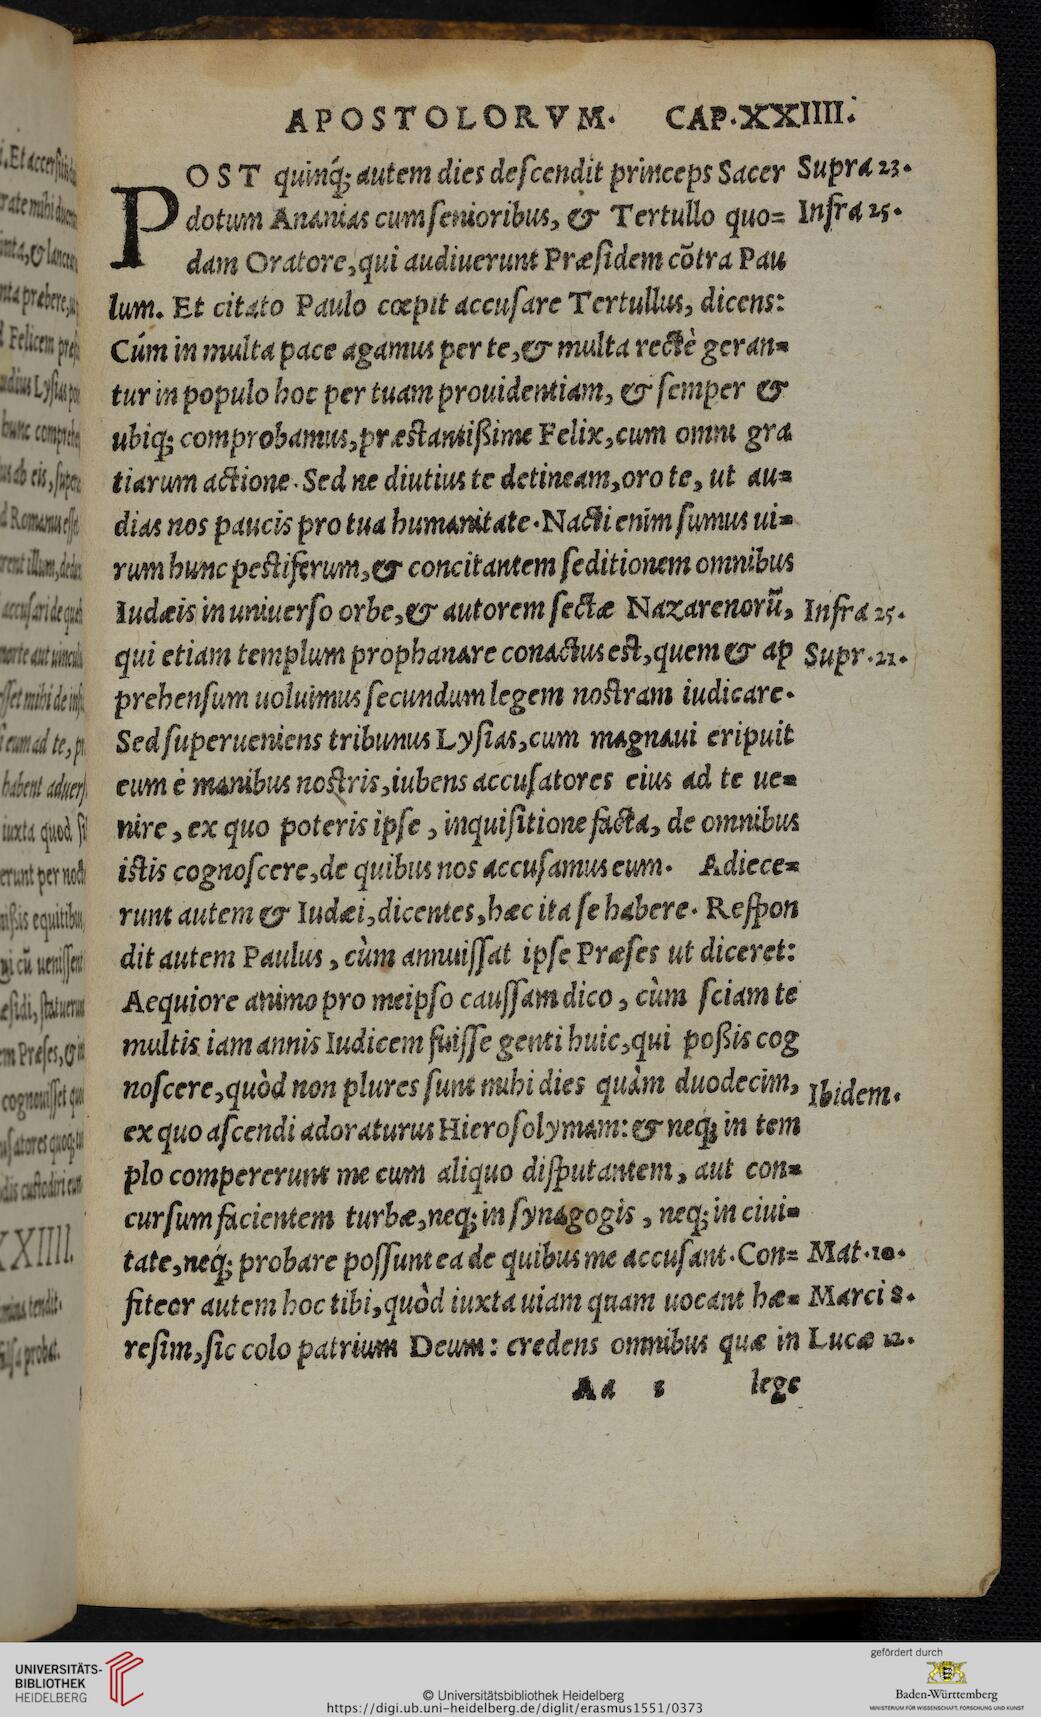 APOSTOLORVM. CAP.XXIIII.
POST quinq́; autem dies deſcendit princeps Sacer
Supra 23.
dotum Ananias cum ſenioribus, & Tertullo quo=
Infra 25.
dam Oratore, qui audiuerunt Præſidem cõtra Pau
lum. Et citato Paulo cœpit accuſare Tertullus, dicens:
Cúm in multa pace agamus per te, & multa rectè geran=
tur in populo hoc per tuam prouidentiam, & ſemper &
ubiq; comprobamus, præstantißime Felix, cum omni gra
tiarum actione. Sed ne diutius te detineam, oro te, ut au=
dias nos paucis pro tua humanitate. Nacti enim ſumus ui=
rum hunc pestiferum, & concitantem ſeditionem omnibus
Iudæis in uniuerſo orbe, & autorem ſectæ Nazarenorũ,
Infra 25.
qui etiam templum prophanare conactus est, quem & ap
Supr. 21.
prehenſum uoluimus ſecundum legem nostram iudicare.
Sed ſuperueniens tribunus Lyſias, cum magna ui eripuit
eum è manibus nostris, iubens accuſatores eius ad te ue=
nire, ex quo poteris ipſe, inquiſitione facta, de omnibus
istis cognoſcere, de quibus nos accuſamus eum. Adiece=
runt autem & Iudæi, dicentes, hæc ita ſe habere. Reſpon
dit autem Paulus, cùm annuiſſat ipſe Præſes ut diceret:
Aequiore animo pro meipſo cauſſam dico, cùm ſciam te
multis iam annis Iudicem fuiſſe genti huic, qui poßis cog
noſcere, quòd non plures ſunt mihi dies quàm duodecim,
Ibidem.
ex quo aſcendi adoraturus Hieroſolymam: & neq; in tem
plo compererunt me cum aliquo diſputantem, aut con=
curſum facientem turbæ, neq; in ſynagogis, neq; in ciui=
tate, neq́; probare poſſunt ea de quibus me accuſant. Con=
Mat. 10.
fiteor autem hoc tibi, quòd iuxta uiam quam uocant hæ=
Marci 8.
reſim, ſic colo patrium Deum: credens omnibus quæ in
Lucæ 12.
Aa
lege
XXIIII.
UNIVERSITÄTS-
BIBLIOTHEK
HEIDELBERG
© Universitätsbibliothek Heidelberg
https://digi.ub.uni-heidelberg.de/diglit/erasmus1551/0373
gefördert durch
Baden-Württemberg
MINISTERIUM FÜR WISSENSCHAFT, FORSCHUNG UND KUNST